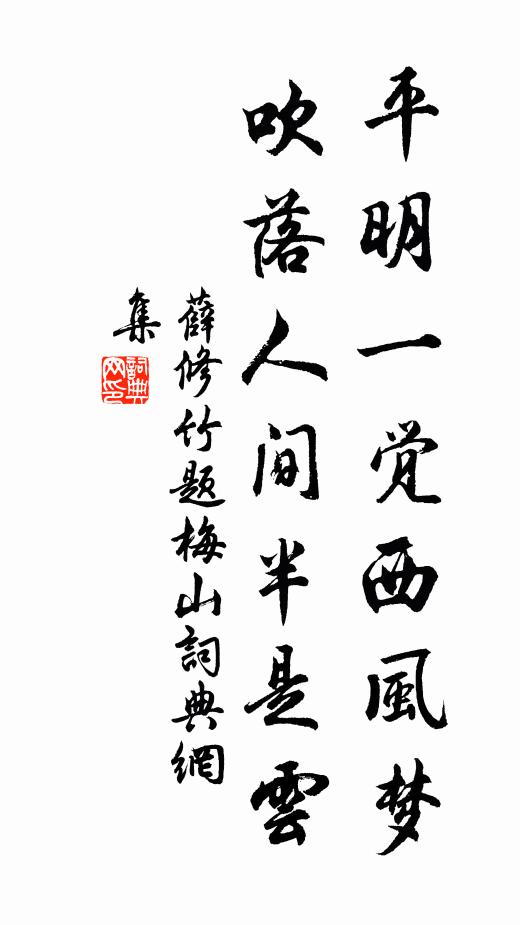 平明一觉西風梦
吹落人间半是雲
薛修竹题梅山詞典網
集
詞典
网印